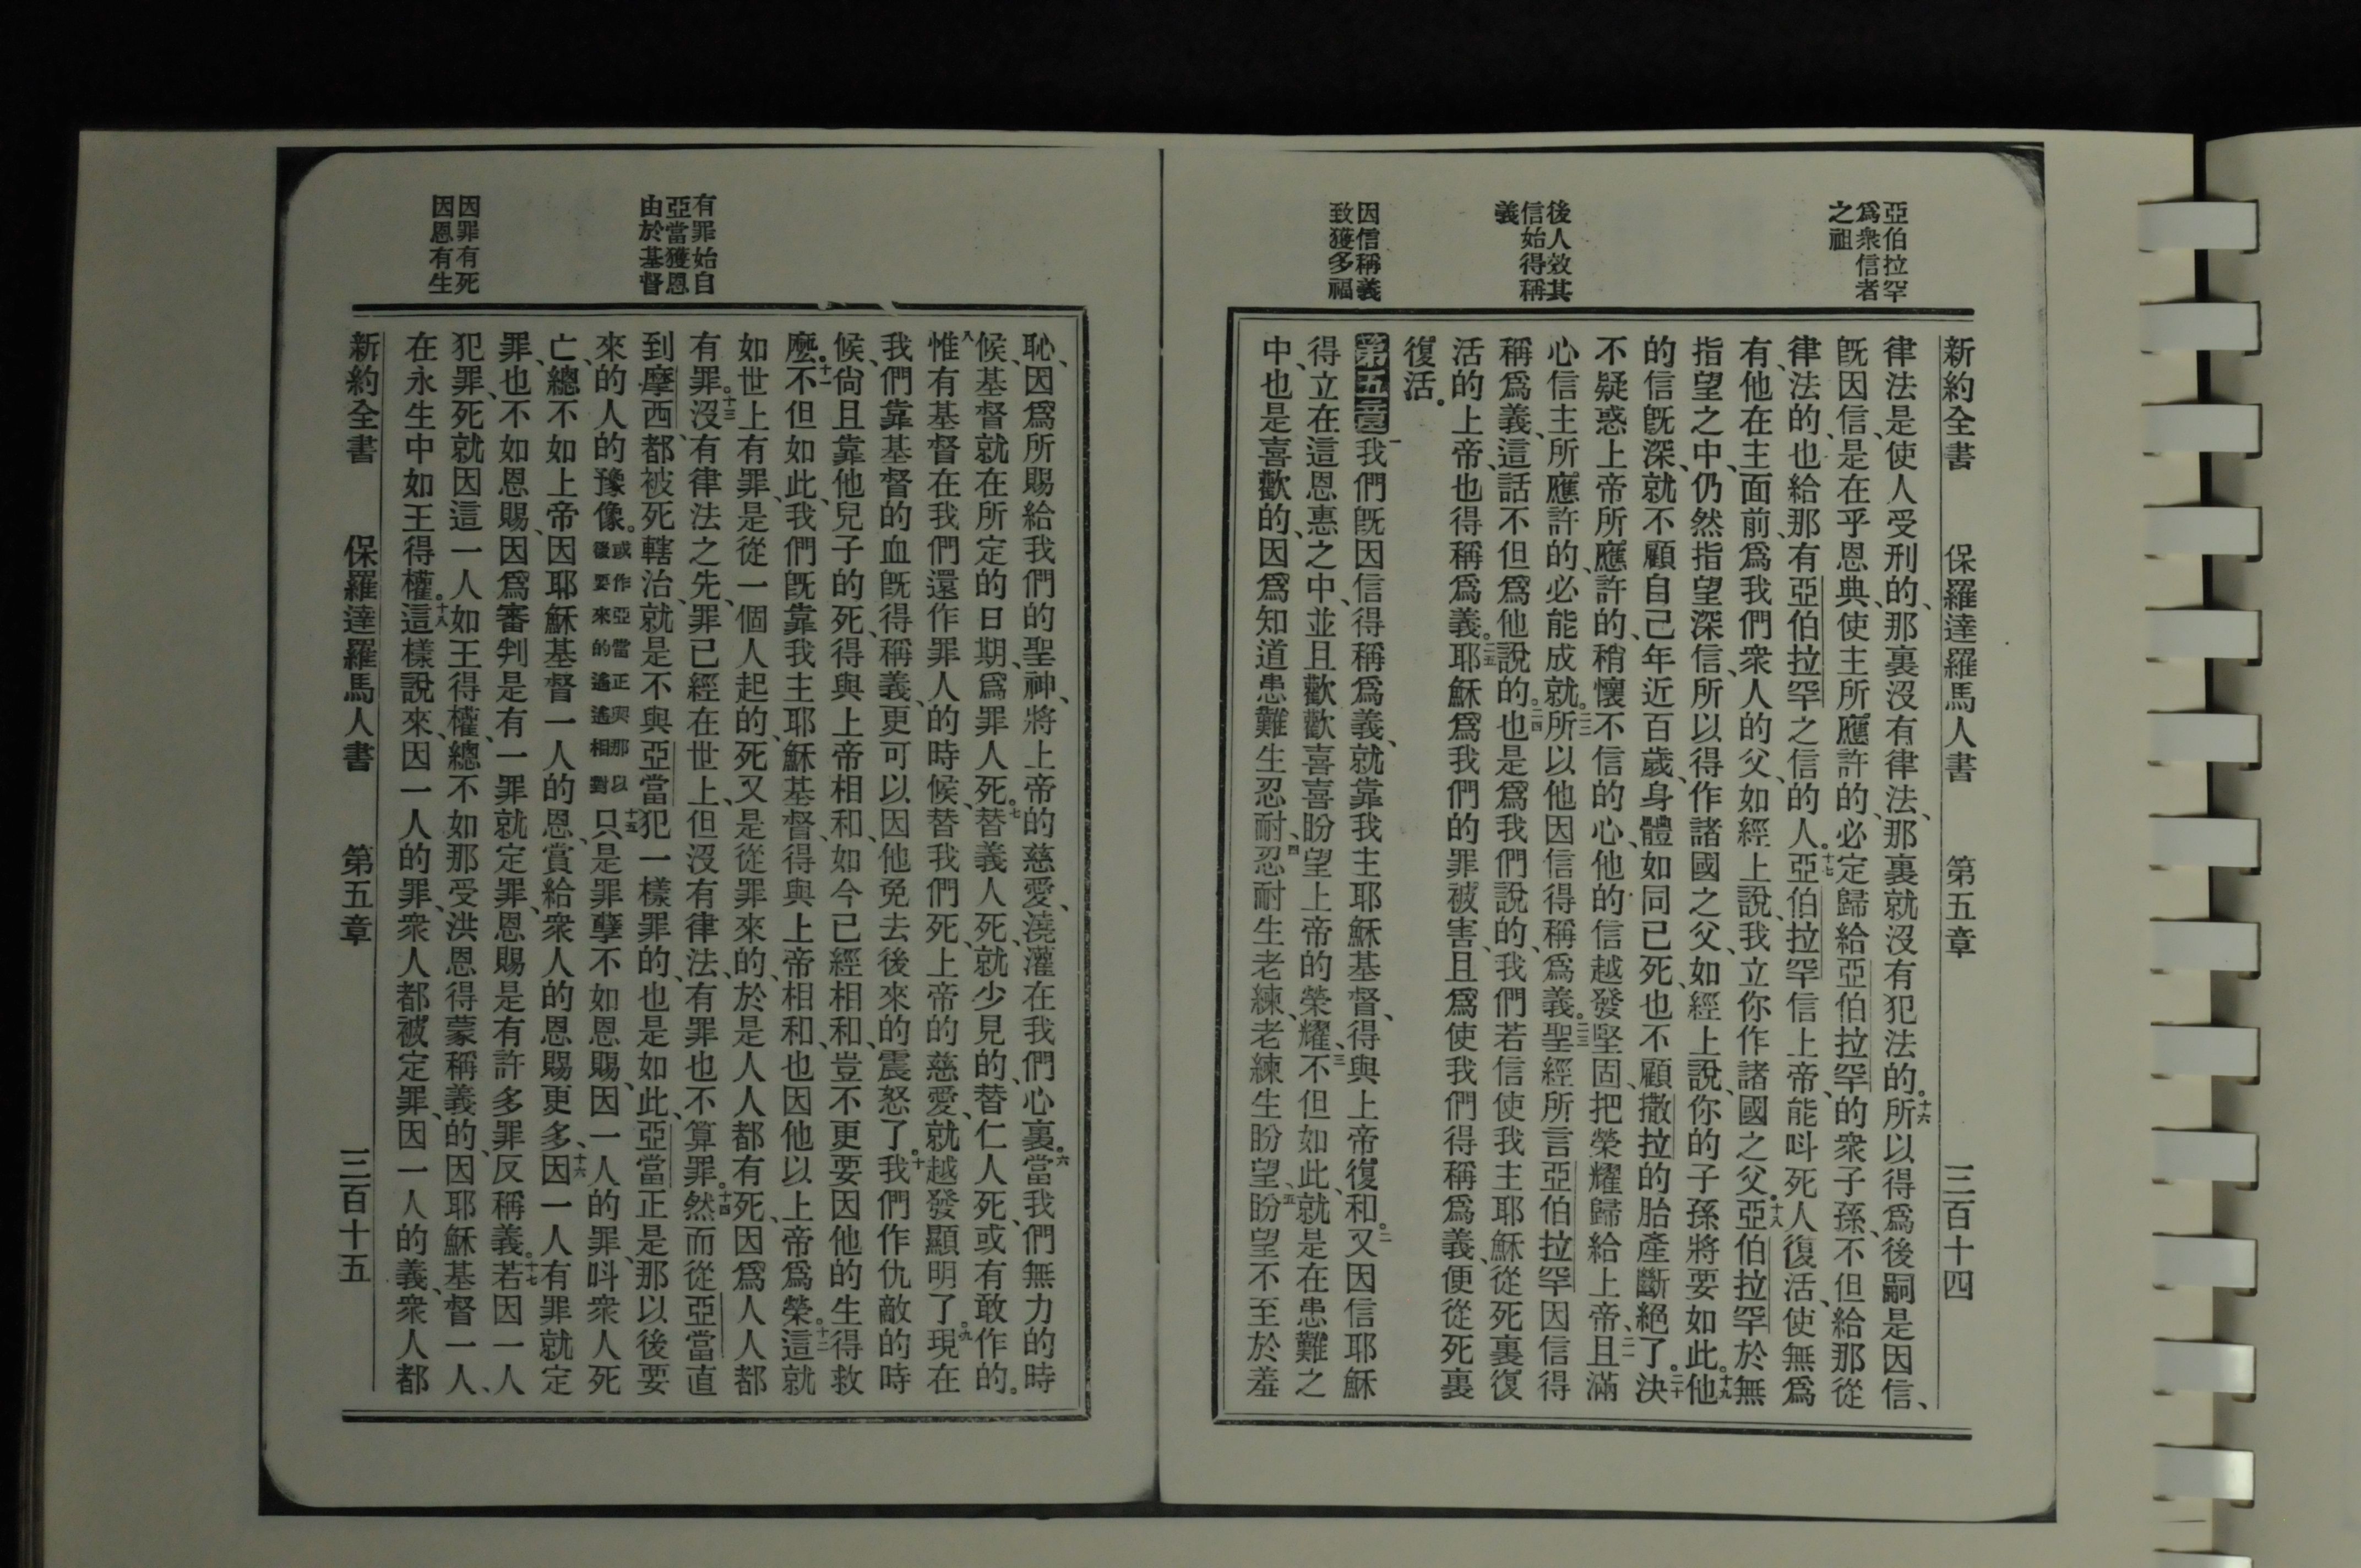 亞伯拉罕
爲衆信者
之祖
後人效其
信始得稱
義
因信稱義
致獲多福
新約全書 保羅達羅馬人書 第五章 三百十四
律法是使人受刑的、那裏沒有律法、那裏就沒有犯法的。十六所以得爲後嗣是因信、
旣因信、是在乎恩典、使主所應許的、必定歸給亞伯拉罕的衆子孫、不但給那從
律法的、也給那有亞伯拉罕之信的人。十七亞伯拉罕信上帝、能呌死人復活、使無爲
有、他在主面前爲我們衆人的父、如經上說、我立你作諸國之父。十八亞伯拉罕於無
指望之中、仍然指望深信、所以得作諸國之父、如經上說、你的子孫將要如此。十九他
的信旣深、就不顧自己年近百歲、身體如同已死、也不顧撒拉的胎產斷絕了。二十決
不疑惑上帝所應許的、稍懷不信的心、他的信越發堅固、把榮耀歸給上帝、二一且滿
心信主所應許的、必能成就。二二所以他因信得稱爲義。二三聖經所言亞伯拉罕因信得
稱爲義、這話不但爲他說的、二四也是爲我們說的、我們若信使我主耶穌從死裏復
活的上帝、也得稱爲義。二五耶穌爲我們的罪被害、且爲使我們得稱爲義、便從死裏
復活。
第五章 一我們旣因信得稱爲義、就靠我主耶穌基督、得與上帝復和。二又因信耶穌
得立在這恩惠之中、並且歡歡喜喜盼望上帝的榮耀、三不但如此、就是在患難之
中、也是喜歡的、因爲知道患難生忍耐、四忍耐生老練、老練生盼望、五盼望不至於羞
有罪始自
亞當獲恩
由於基督
因罪有死
因恩有生
恥、因爲所賜給我們的聖神、將上帝的慈愛、澆灌在我們心裏。六當我們無力的時
候、基督就在所定的日期、爲罪人死。七替義人死、就少見的、替仁人死、或有敢作的。
八惟有基督在我們還作罪人的時候、替我們死、上帝的慈愛、就越發顯明了。九現在
我們靠基督的血旣得稱義、更可以因他免去後來的震怒了。十我們作仇敵的時
候、尙且靠他兒子的死、得與上帝相和、如今已經相和、豈不更要因他的生得救
麼。十一不但如此、我們旣靠我主耶穌基督、得與上帝相和、也因他以上帝爲榮。十二這就
如世上有罪、是從一個人起的、死又是從罪來的、於是人人都有死、因爲人人都
有罪。十三沒有律法之先、罪已經在世上、但沒有律法、有罪也不算罪。十四然而從亞當直
到摩西、都被死轄治、就是不與亞當犯一樣罪的、也是如此、亞當正是那以後要
來的人的豫像。或作亞當正與那以後要來的遙遙相對十五只是罪孽不如恩賜、因一人的罪、呌衆人死
亡、總不如上帝因耶穌基督一人的恩、賞給衆人的恩賜更多、十六因一人有罪就定
罪、也不如恩賜、因爲審判是有一罪就定罪、恩賜是有許多罪反稱義。十七若因一人
犯罪、死就因這一人如王得權、總不如那受洪恩得蒙稱義的、因耶穌基督一人、
在永生中如王得權。十八這樣說來、因一人的罪、衆人都被定罪、因一人的義、衆人都
新約全書 保羅達羅馬人書 第五章 三百十五